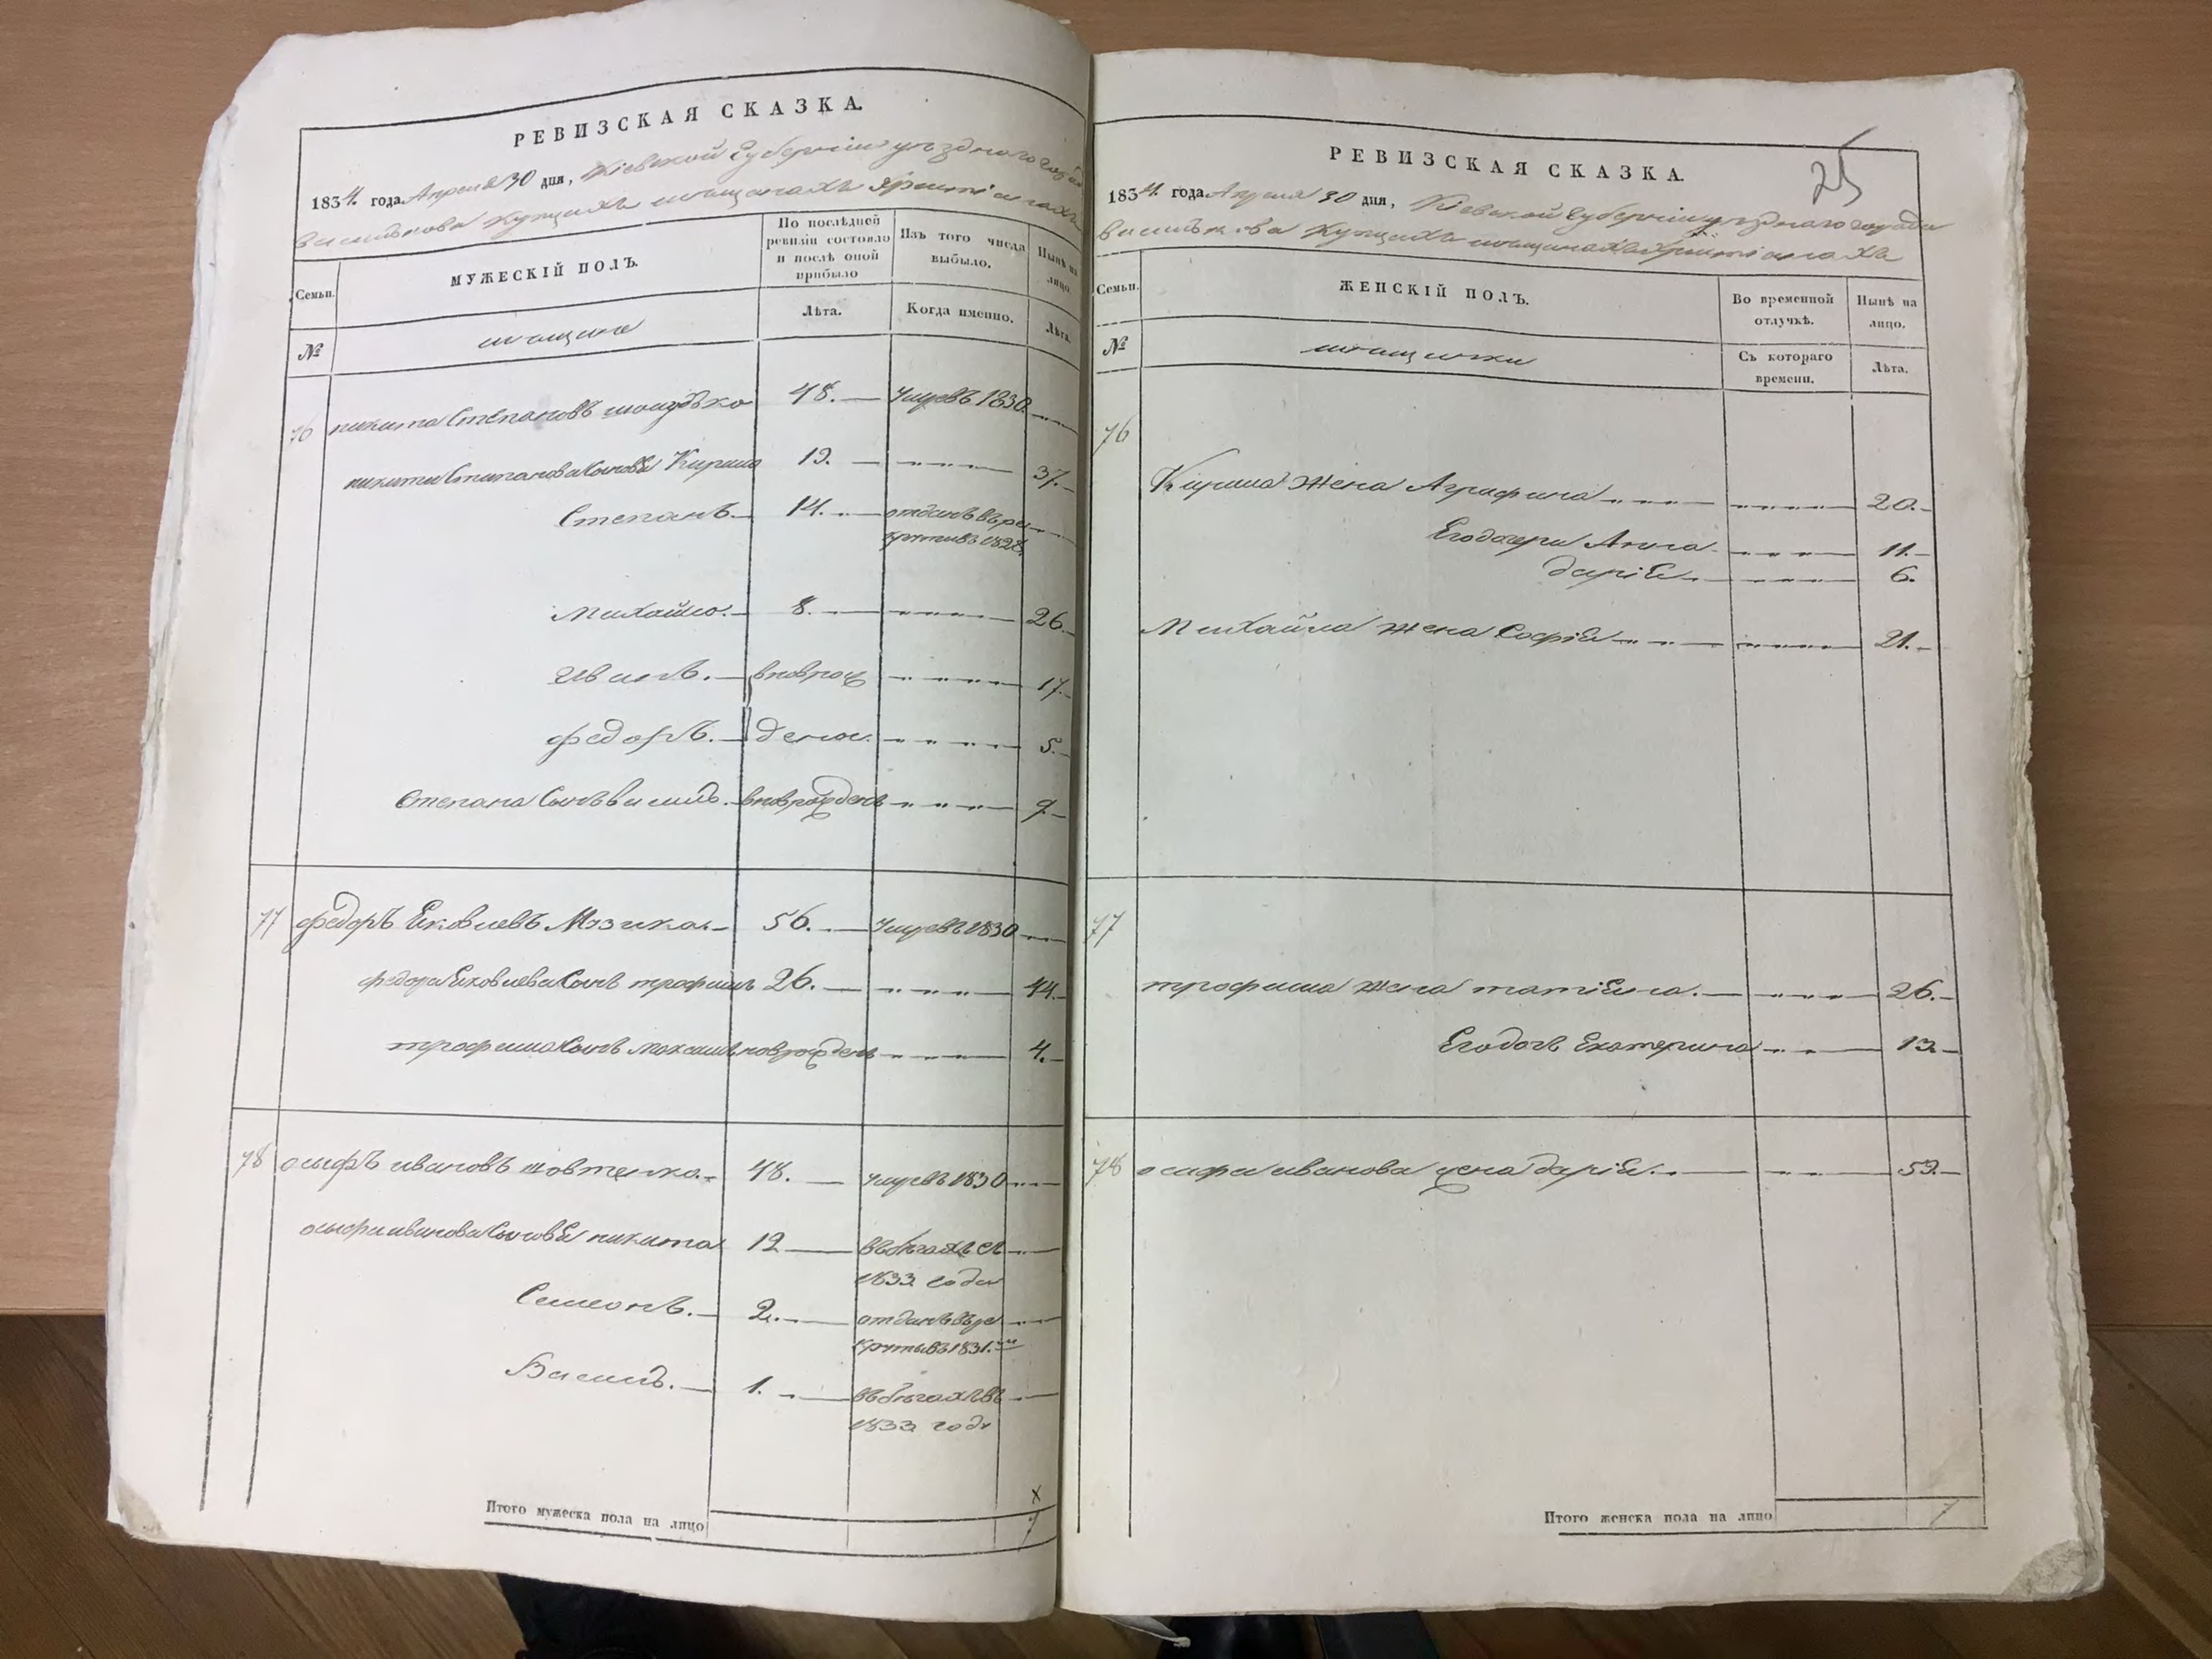 РЕВИЗСКАЯ СКАЗКА.
1834. года Апреля 30 дня, Кіевской Губерніи уѣзднаго города
Василькова Купцахъ мѣщанахъ христіанахъ
Семьи.
МУЖЕСКІЙ ПОЛЪ.
По послѣдней ревизіи состояло и послѣ оной прибыло
Изъ того числа выбыло.
Нынѣ на лицо.
№
мѣщане
Лѣта.
Когда именно.
Лѣта.
76 никита Степановъ 48. умре въ 1830.
никиты Степанова Сыновья Кирило 19. 37.
Степанъ. 14. отданъ въ ре
круты въ 1828.
Михайло. 8. 26.
Иванъ. вновь рож 17.
федоръ. дены. 5.
Степана Сынъ василь. вновь рожденъ 9.
77 федоръ Яковлевъ Мазика. 56. умре въ 1830
федора Яковлева Сынъ трофимъ 26. 44.
трофима Сынъ максимъ новрожденъ 4.
78 осифъ ивановъ шовтенко. 48. умре въ 1830
осифа иванова Сыновья никита 12 въ бѣгахъ съ
1833 года
Семенъ. 2. отданъ въ ре
круты въ 1831.м
Василь. 1. въ бѣгахъ въ
1833 году
Итого мужеска пола на лицо
x
7
25
РЕВИЗСКАЯ СКАЗКА.
1834. года Апреля 30 дня, Кіевской Губерніи уѣзднаго города
Василькова Купцахъ мѣщанахъ христіанахъ
Семьи.
ЖЕНСКІЙ ПОЛЪ.
Во временной отлучкѣ.
Нынѣ на лицо.
№
мѣщанки
Съ котораго времени.
Лѣта.
76
Кирила жена Аграфина 20.
Его дочери Анна 11.
дарія 6.
Михайла жена Софія 21.
77
трофима жена татіяна. 26.
Его дочь Екатерина 13.
78 осифа иванова жена дарія. 53.
Итого женска пола на лицо 7